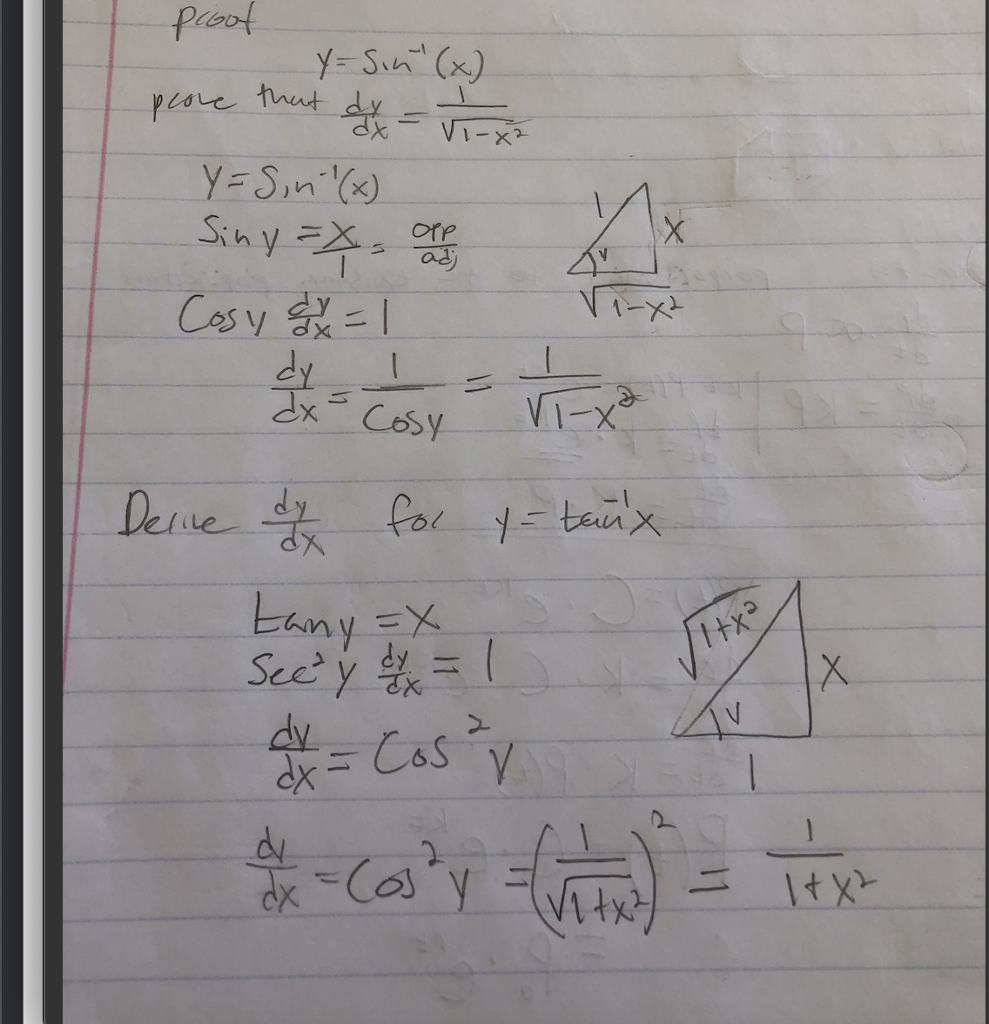 proof
y = Sin⁻¹(x)
prove that dy/dx = 1/√(1-x²)
y = Sin⁻¹(x)
Sin y = x/1 = opp/adj
1
x
y
√(1-x²)
Cosy dy/dx = 1
dy/dx = 1/Cosy = 1/√(1-x²)
Derive dy/dx for y = tan⁻¹x
tany = x
Sec²y dy/dx = 1
√(1+x²)
x
y
1
dy/dx = Cos²y
dy/dx = Cos²y = (1/√(1+x²))² = 1/(1+x²)